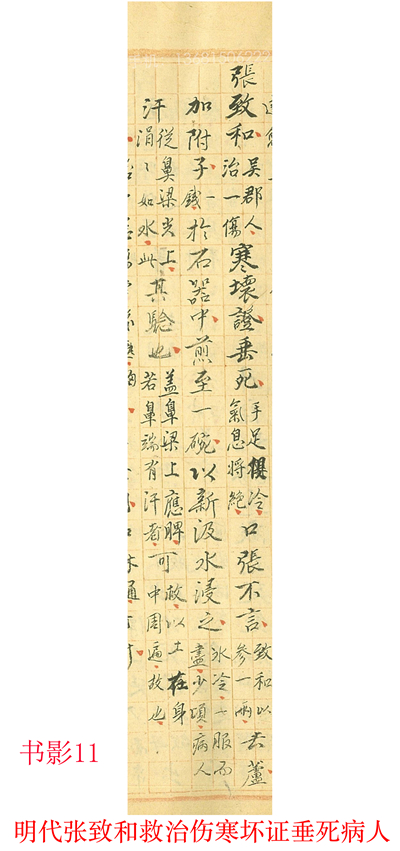 張致和吳郡人治一傷寒壞證垂死手足俱冷氣息將絕口張不言致和以參一兩去蘆
加附子一錢於石器中煎至一碗以新汲水浸之氷冷一服而盡少頃病人
汗從鼻梁尖上涓〻如水此其驗也蓋鼻梁上應脾若鼻端有汗者可救以土在身中周遍故也
书影11
明代张致和救治伤寒坏证垂死病人